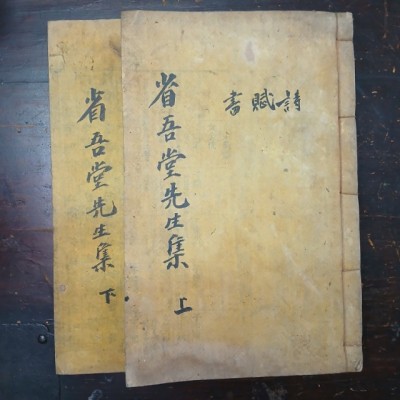 詩賦書
省吾堂先生集 上
省吾堂先生集 下